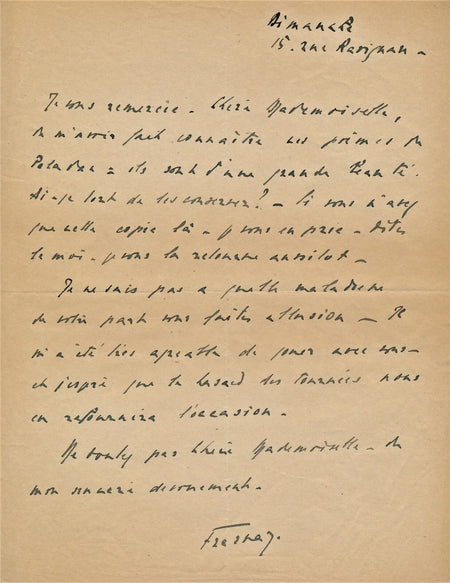 Dimanche
15. rue Ravignan -
Je vous remercie - Chère Mademoiselle,
de m'avoir fait connaître ces poèmes de
Peladan - ils sont d'une grande beauté.
Ai-je tort de les conserver? - Si vous n'avez
que cette copie là - je vous en prie - dites
le moi - je vous la retourne aussitôt -
Je ne sais pas a quelle maladresse
de votre part vous faites allusion - Il
m'a été très agréable de jouer avec vous -
et j'espère que le hasard des tournées nous
en refournira l'occasion -
Ne doutez pas Chère Mademoiselle - de
mon sincère dévouement -
Fresnay.